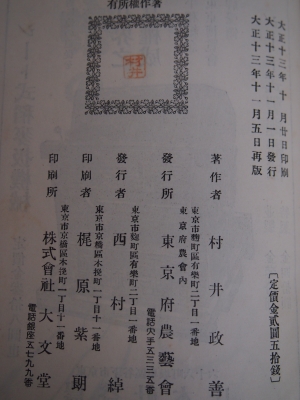 有所權作著
村井
大正十三年十月廿日印刷
大正十三年十一月一日發行
大正十三年十一月五日再版
〔定價金貳圓五拾錢〕
著作者 村井政善
東京市麴町區有樂町二丁目一番地
東京府農會內
發行所 東京府農藝會
電話大手五三三五番
東京市麴町區有樂町二丁目一番地
發行者 西村綽
東京市京橋區木挽町一丁目十一番地
印刷者 梶原紫朗
東京市京橋區木挽町一丁目十一番地
印刷所 株式會社大文堂
電話銀座五七九九番